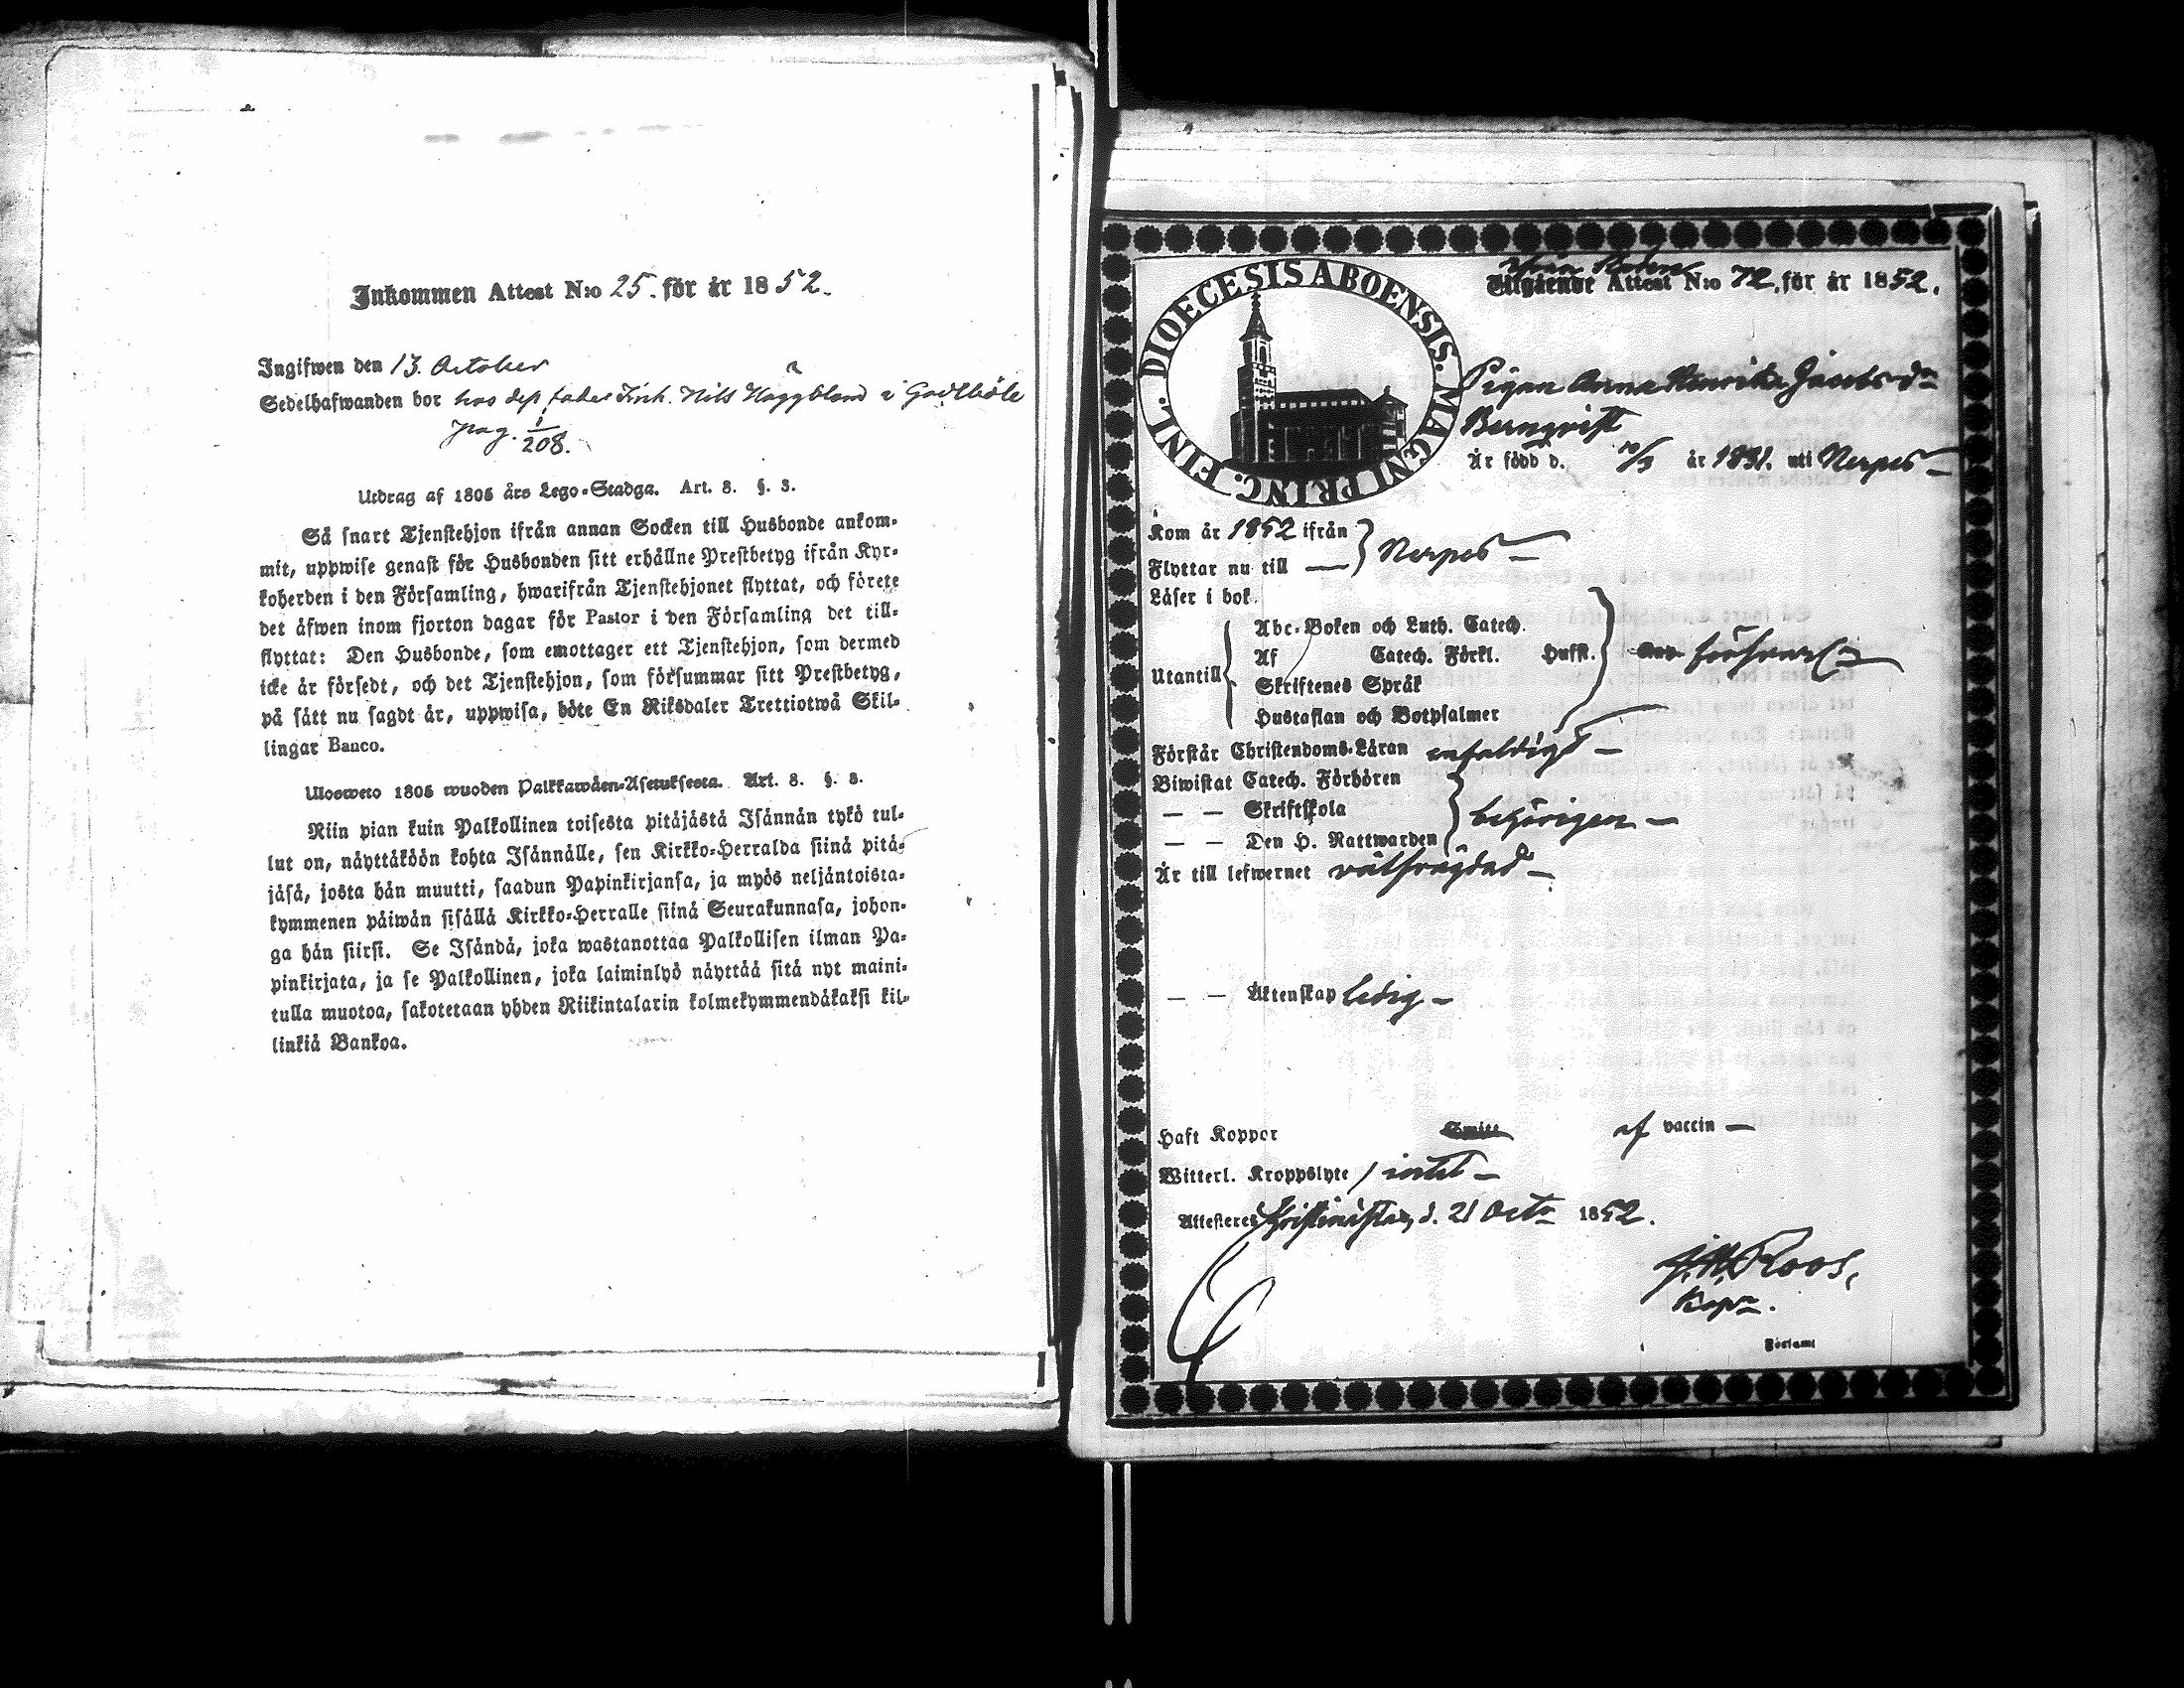 Inkommen Attest N:o 25. för år 1852.
Ingifwen den 13. October
Sedelhafwanden bor hos dess fader Nils Häggblom i
pag. 1/208.
Utdrag af 1805 års Lego-Stadga. Art. 8. §. 3.
Så snart Tjenstehjon ifrån annan Socken till Husbonde ankom-
mit, uppwise genast för Husbonden sitt erhållne Prestbetyg ifrån Kyr-
koherden i den Församling, hwarifrån Tjenstehjonet flyttat, och förete
det åfwen inom fjorton dagar för Pastor i den Församling det till-
flyttat: Den Husbonde, som emottager ett Tjenstehjon, som dermed
icke är försedt, och det Tjenstehjon, som försummar sitt Prestbetyg,
på sått nu sagdt är, uppwisa, böte En Riksdaler Trettiotwå Skil-
lingar Banco.
Ulosweto 1805 wuoden Palkkawåen-Asetuksesta. Art. 8. §. 3.
Niin pian kuin Palkollinen toisesta pitäjästä Isännän tykö tul-
lut on, näyttäköön kohta Isännälle, sen Kirkko-Herralda siinä pitä-
jäsä, josta hän muutti, saadun Papinkirjansa, ja myös neljäntoista-
kymmenen päiwän sisällä Kirkko-Herralle siinä Seurakunnasa, johon-
ga hän siirsi. Se Isändä, joka wastanottaa Palkollisen ilman Pa-
pinkirjata, ja se Palkollinen, joka laiminlyö näyttää sitä nyt maini-
tulla muotoa, sakotetaan yhden Riikintalarin kolmekymmendäkaksi kil-
linkiä Bankoa.
DIOECESIS ABOENSIS. MAGNI PRINC. FINL.
Utgående Attest N:o 72, för år 1852.
Pigan Anna Henrika Jacobsdr
Bernqvist
Är född d. 10/3 år 1831. uti Nerpes
Kom år 1852 ifrån
Flyttar nu till
Nerpes
Läser i bok
Utantill
Abc-Boken och Luth. Catech.
Af Catech. Förkl. Hufst.
Skriftenes Språk
Hustaflan och Botpsalmer
försvarl.
Förstår Christendoms-Läran enfaldigt
Biwistat Catech. Förhören
— — Skriftskola
— — Den H. Nattwarden
behörigen
Är till lefwernet välfrägdad
— — Äktenskap ledig
Haft Koppor Smitt af vaccin
Witterl. Kroppslyte / intet
Attesteres Christinestad, d. 21 Octr 1852.
Roos.
Kapn.
Förlamt